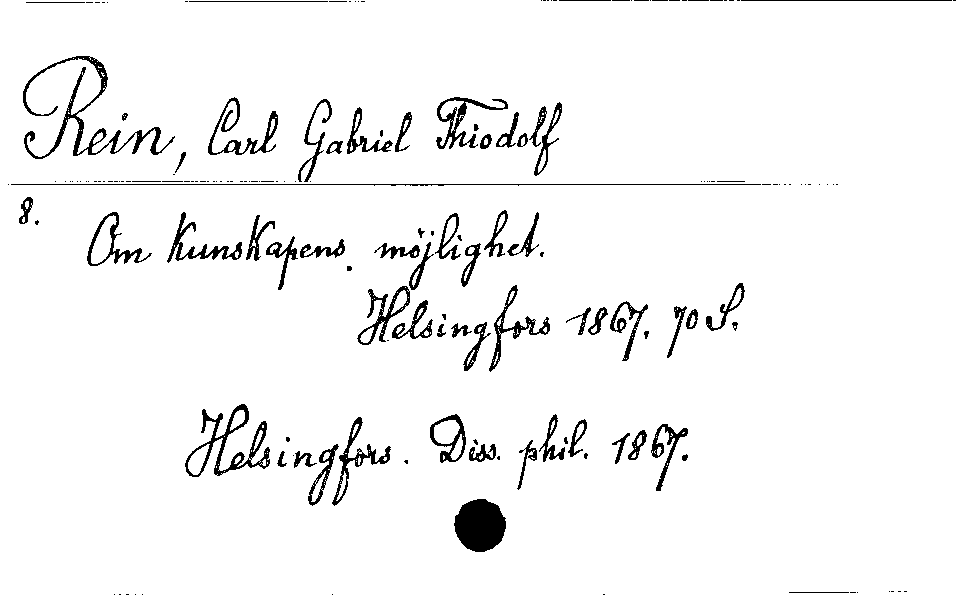 Rein, Carl Gabriel Thiodolf
8.
Om Kunskapens möjlighet.
Helsingfors 1867. 70 S.
Helsingfors. Diss. phil. 1867.